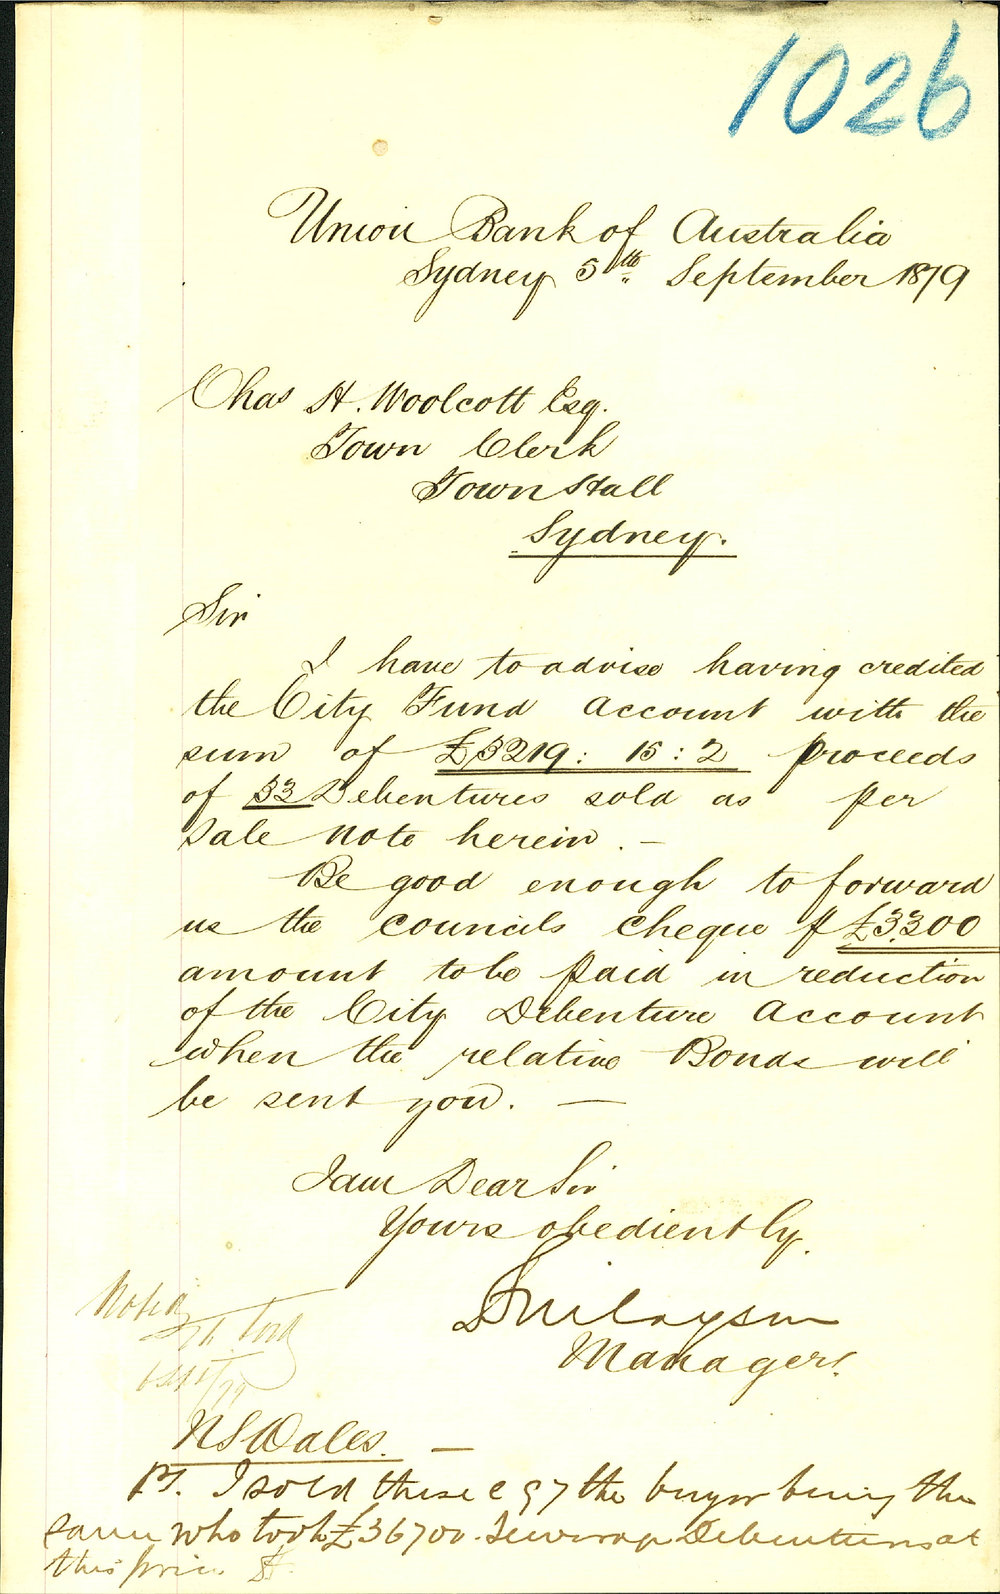 1026
Union Bank of Australia
Sydney 5th September 1879
Chas H. Woolcott Esq.
Town Clerk
Town Hall
Sydney.
Sir
I have to advise having credited
the City Fund Account with the
sum of £3219: 15: 2 proceeds
of 33 Debentures sold as per
sale note herein. —
Be good enough to forward
us the Councils cheque £3300
amount to be paid in reduction
of the City Debenture Account
when the relative Bonds will
be sent you. —
I am Dear Sir
Yours obediently.
Manager.
Noted
6 Sept/79
NSWales. —
PS. I sold these @ 97 the buyer being the
same who took £36700. Sewerage Debentures at
this price